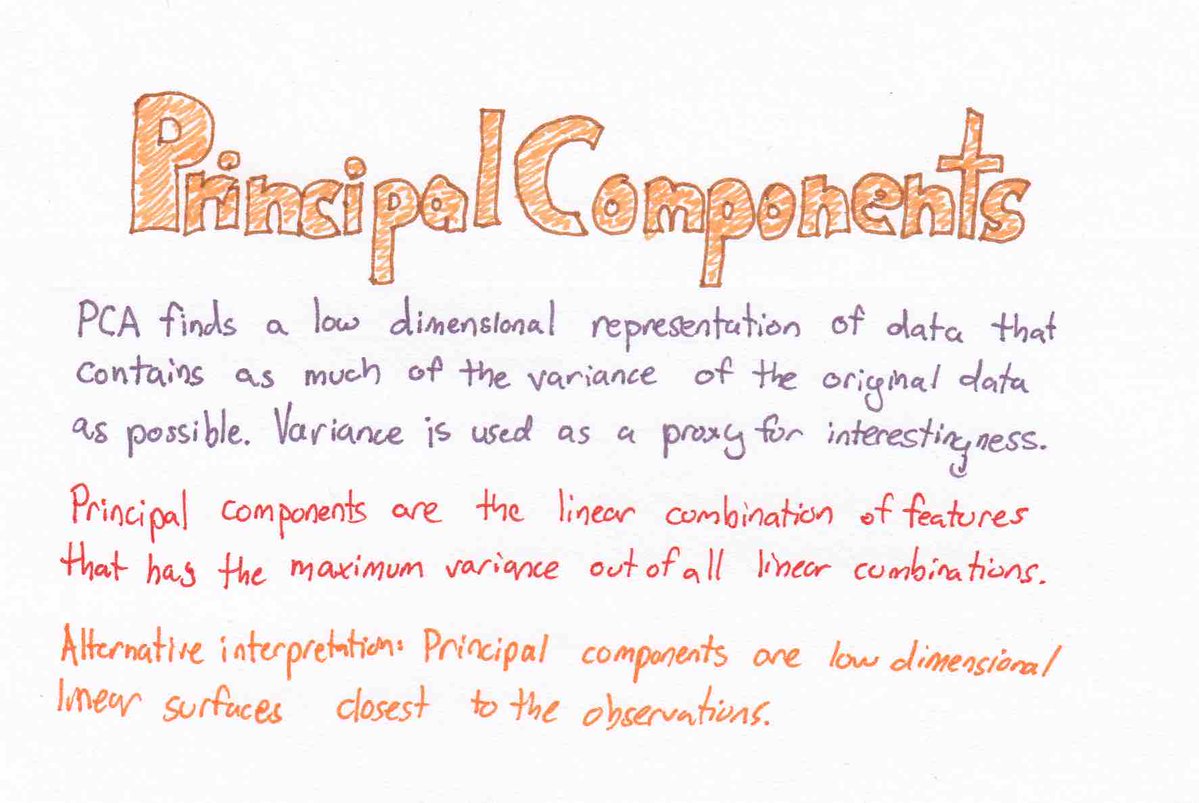 Principal Components
PCA finds a low dimensional representation of data that
contains as much of the variance of the original data
as possible. Variance is used as a proxy for interestingness.
Principal components are the linear combination of features
that has the maximum variance out of all linear combinations.
Alternative interpretation: Principal components are low dimensional
linear surfaces closest to the observations.